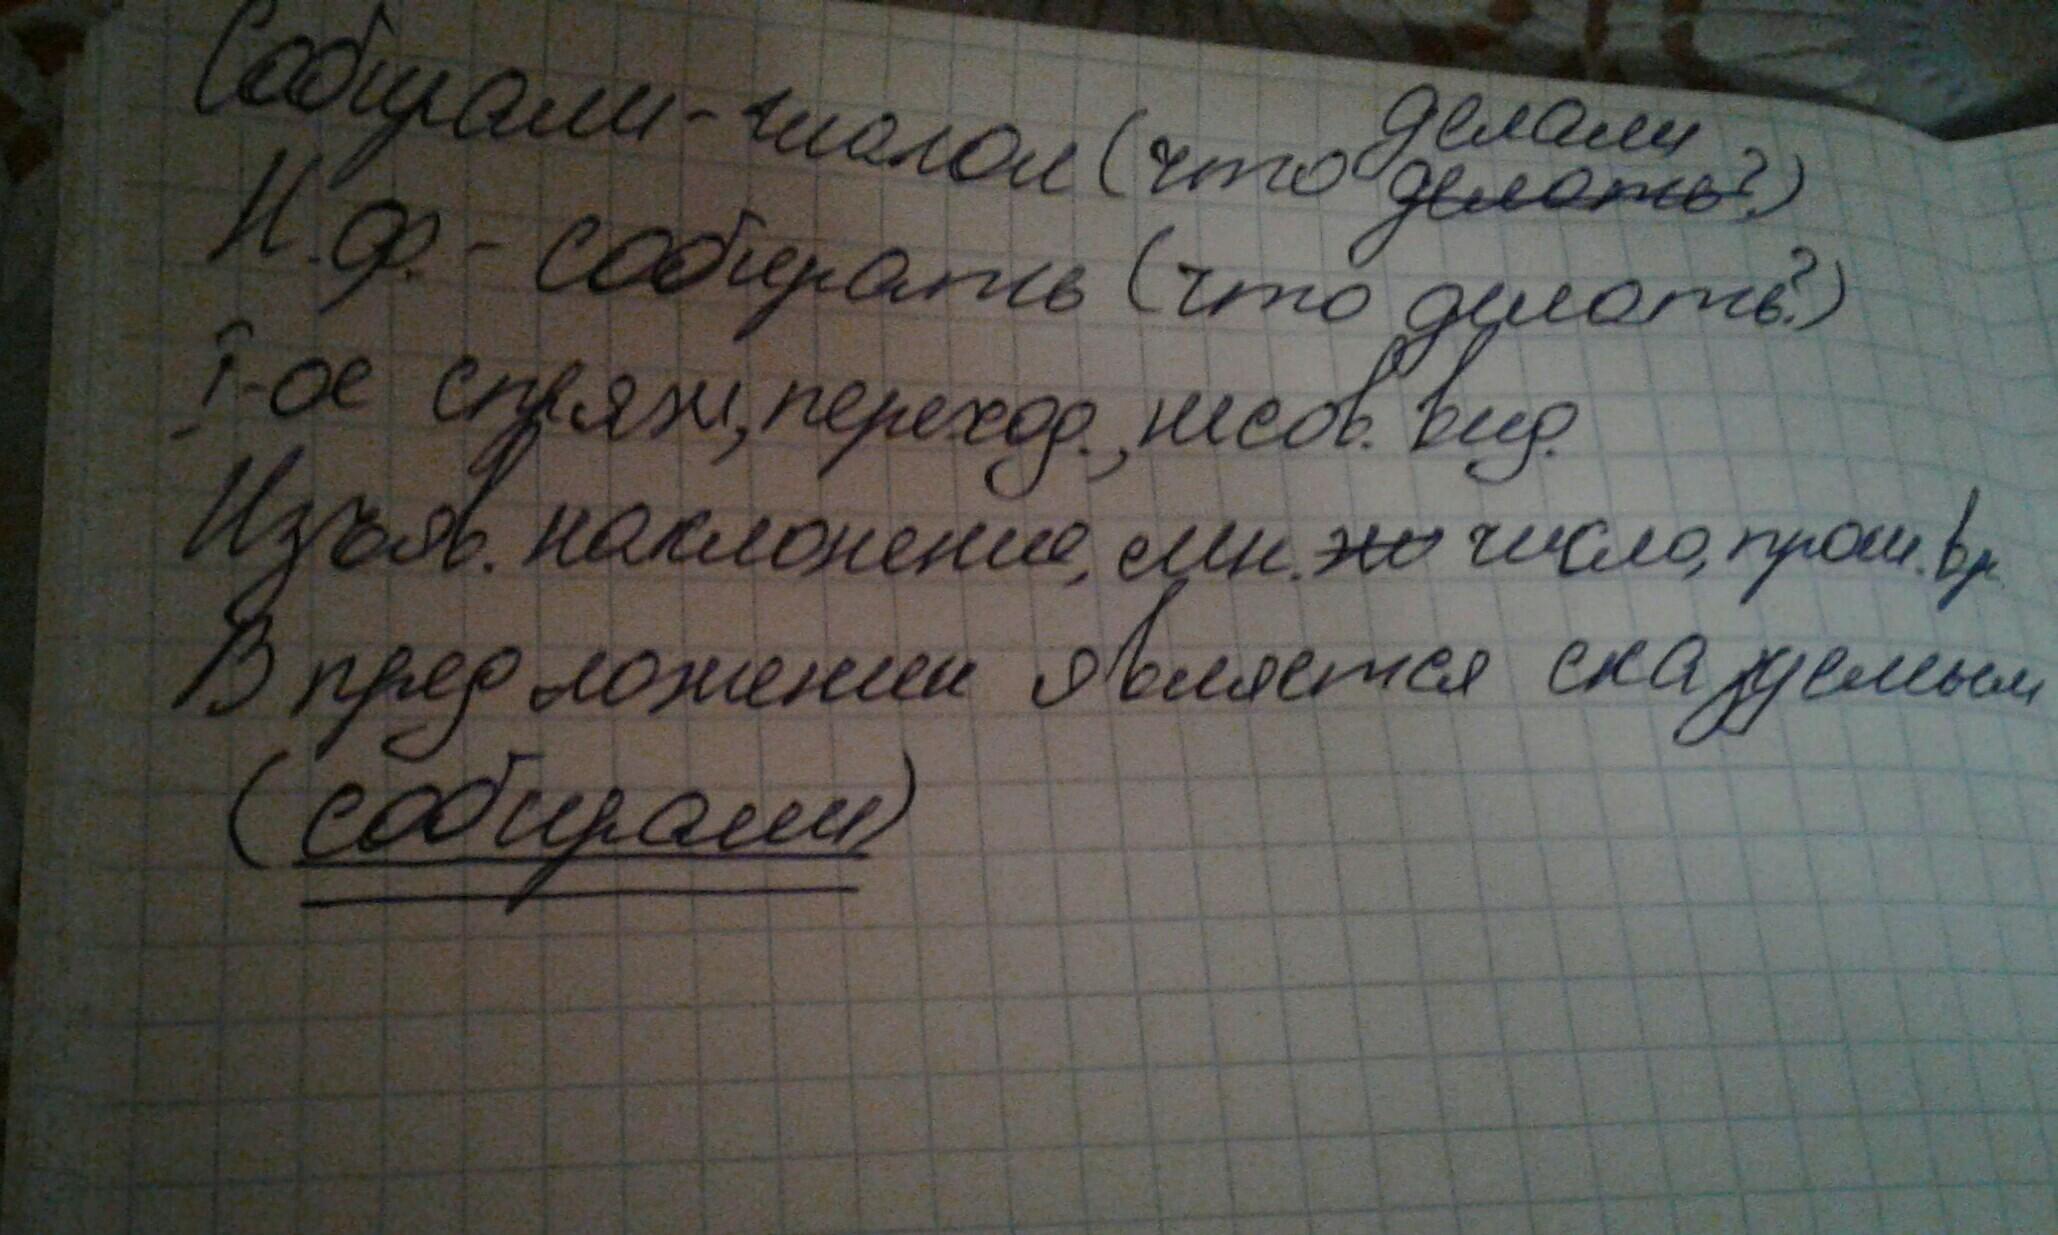 Собирали - глагол (что делали
делать?)
Н.ф. - собирать (что делать?)
I-ое спряж, переход., несов. вид.
Изъяв. наклонение, мн. число, прош. вр.
В предложении является сказуемым
(собирали)